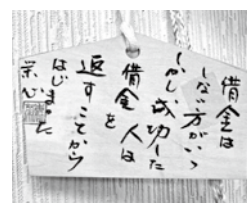 借金は
しない方がいい
しかし成功した
人は
借金を
返すことから
はじまった